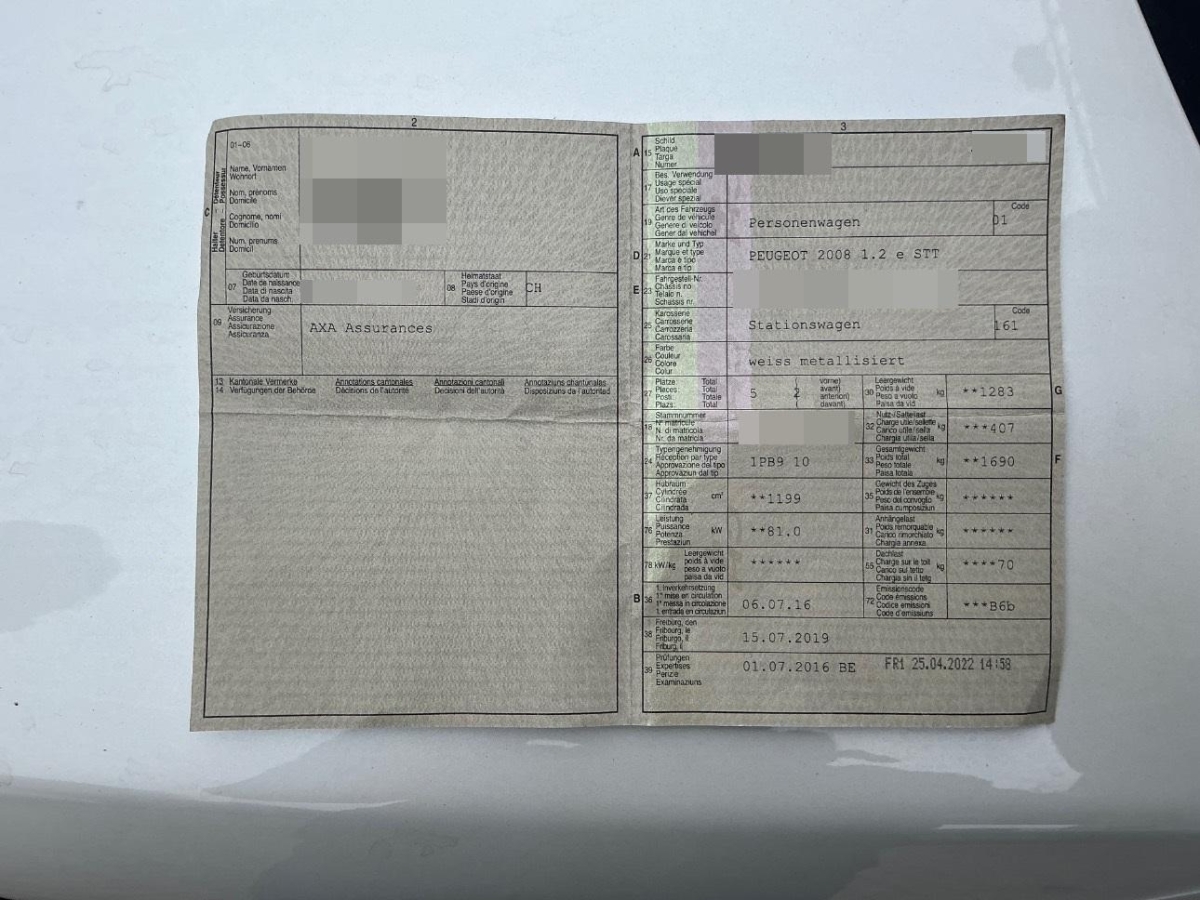 2
01-06
Name, Vornamen
Wohnort
Nom, prénoms
Domicile
Cognome, nomi
Domicilio
Num, prenums
Domicil
C
Halter - Détenteur
Detentore - Possessur
07
Geburtsdatum
Date de naissance
Data di nascita
Data da nasch.
08
Heimatstaat
Pays d'origine
Paese d'origine
Stadi d'origin
CH
09
Versicherung
Assurance
Assicurazione
Assicuranza
AXA Assurances
13
14
Kantonale Vermerke
Verfügungen der Behörde
Annotations cantonales
Décisions de l'autorité
Annotazioni cantonali
Decisioni dell'autorità
Annotaziuns chantunalas
Disposiziuns da l'autoritad
3
A 15
Schild
Plaque
Targa
Numer
17
Bes. Verwendung
Usage spécial
Uso speciale
Diever spezial
19
Art des Fahrzeugs
Genre de véhicule
Genere di veicolo
Gener dal vehichel
Personenwagen
Code
01
D 21
Marke und Typ
Marque et type
Marca e tipo
Marca e tip
PEUGEOT 2008 1.2 e STT
E 23
Fahrgestell-Nr.
Châssis no
Telaio n.
Schassis nr.
25
Karosserie
Carrosserie
Carrozzeria
Carossaria
Stationswagen
Code
161
26
Farbe
Couleur
Colore
Colur
weiss metallisiert
27
Plätze Total
Places Total
Posti Totale
Plazs Total
5 2
( vorne)
( avant)
( anteriori)
( davant)
30
Leergewicht
Poids à vide
Peso a vuoto
Paisa da vid
kg
**1283
G
18
Stammnummer
N° matricule
N. di matricola
Nr. da matricla
32
Nutz-/Sattellast
Charge utile/sellette
Carico utile/sella
Chargia utila/sella
kg
***407
24
Typengenehmigung
Réception par type
Approvazione del tipo
Approvaziun dal tip
1PB9 10
33
Gesamtgewicht
Poids total
Peso totale
Paisa totala
kg
**1690
F
37
Hubraum
Cylindrée
Cilindrata
Cilindrada
cm³
**1199
35
Gewicht des Zuges
Poids de l'ensemble
Peso del convoglio
Paisa cumposiziun
kg
******
76
Leistung
Puissance
Potenza
Prestaziun
kW
**81.0
31
Anhängelast
Poids remorquable
Carico rimorchiato
Chargia annexa
kg
******
78 kW/kg
Leergewicht
poids à vide
peso a vuoto
paisa da vid
******
55
Dachlast
Charge sur le toit
Carico sul tetto
Chargia sin il tetg
kg
****70
B 36
1. Inverkehrsetzung
1re mise en circulation
1a messa in circolazione
1. entrada en circulaziun
06.07.16
72
Emissionscode
Code émissions
Codice emissioni
Code d'emissiuns
***B6b
38
Freiburg, den
Fribourg, le
Friburgo, il
Friburg, il
15.07.2019
39
Prüfungen
Expertises
Perizie
Examinaziuns
01.07.2016 BE
FR1 25.04.2022 14:58